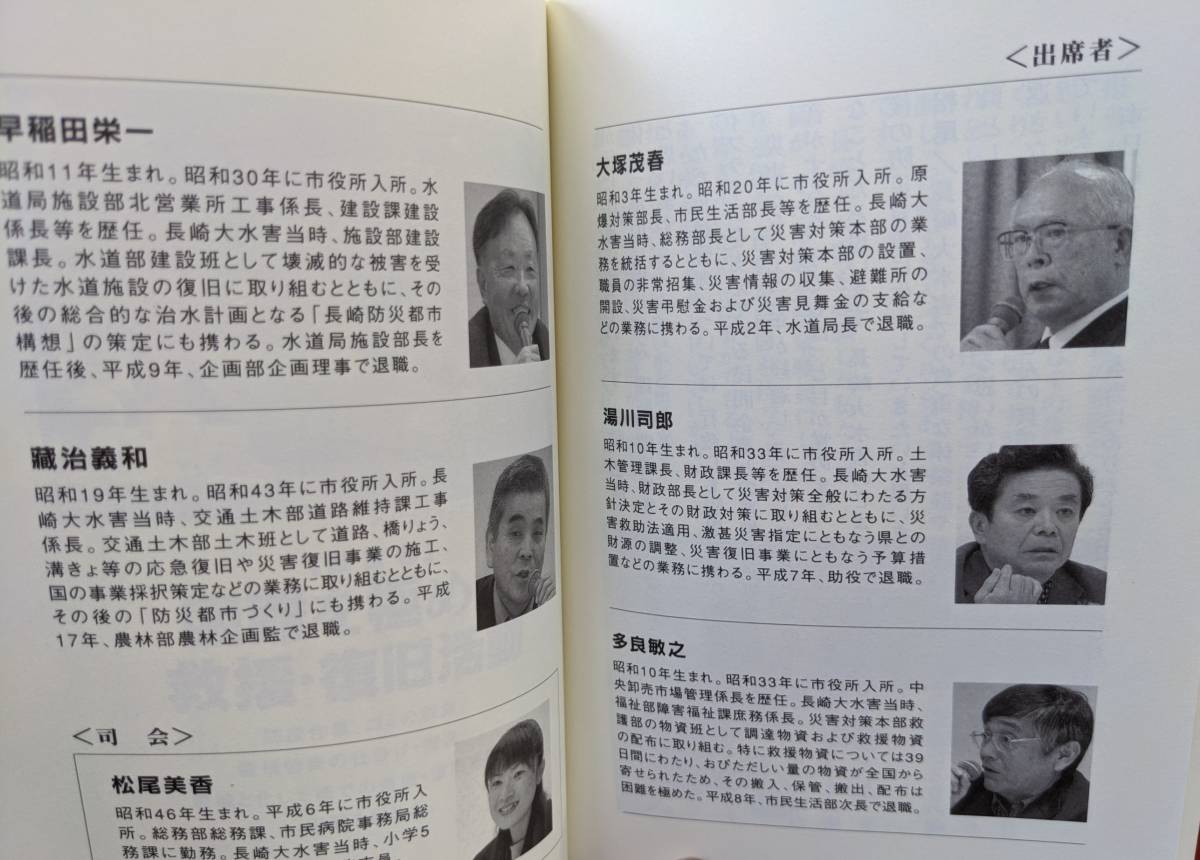 <出席者>
大塚茂春
昭和3年生まれ。昭和20年に市役所入所。原
爆対策部長、市民生活部長等を歴任。長崎大
水害当時、総務部長として災害対策本部の業
務を統括するとともに、災害対策本部の設置、
職員の非常招集、災害情報の収集、避難所の
開設、災害弔慰金および災害見舞金の支給な
どの業務に携わる。平成2年、水道局長で退職。
湯川司郎
昭和10年生まれ。昭和33年に市役所入所。土
木管理課長、財政課長等を歴任。長崎大水害
当時、財政部長として災害対策全般にわたる方
針決定とその財政対策に取り組むとともに、災
害救助法適用、激甚災害指定にともなう県との
財源の調整、災害復旧事業にともなう予算措
置などの業務に携わる。平成7年、助役で退職。
多良敏之
昭和10年生まれ。昭和33年に市役所入所。中
央卸売市場管理係長を歴任。長崎大水害当時、
福祉部障害福祉課庶務係長。災害対策本部救
護部の物資班として調達物資および救援物資
の配布に取り組む。特に救援物資については39
日間にわたり、おびただしい量の物資が全国から
寄せられたため、その搬入、保管、搬出、配布は
困難を極めた。平成8年、市民生活部次長で退職。
早稲田栄一
昭和11年生まれ。昭和30年に市役所入所。水
道局施設部北営業所工事係長、建設課建設
係長等を歴任。長崎大水害当時、施設部建設
課長。水道部建設班として壊滅的な被害を受
けた水道施設の復旧に取り組むとともに、その
後の総合的な治水計画となる「長崎防災都市
構想」の策定にも携わる。水道局施設部長を
歴任後、平成9年、企画部企画理事で退職。
藏治義和
昭和19年生まれ。昭和43年に市役所入所。長
崎大水害当時、交通土木部道路維持課工事
係長。交通土木部土木班として道路、橋りょう、
溝きょ等の応急復旧や災害復旧事業の施工、
国の事業採択策定などの業務に取り組むとともに、
その後の「防災都市づくり」にも携わる。平成
17年、農林部農林企画監で退職。
<司 会>
松尾美香
昭和46年生まれ。平成6年に市役所入
所。総務部総務課、市民病院事務局総
務課に勤務。長崎大水害当時、小学5